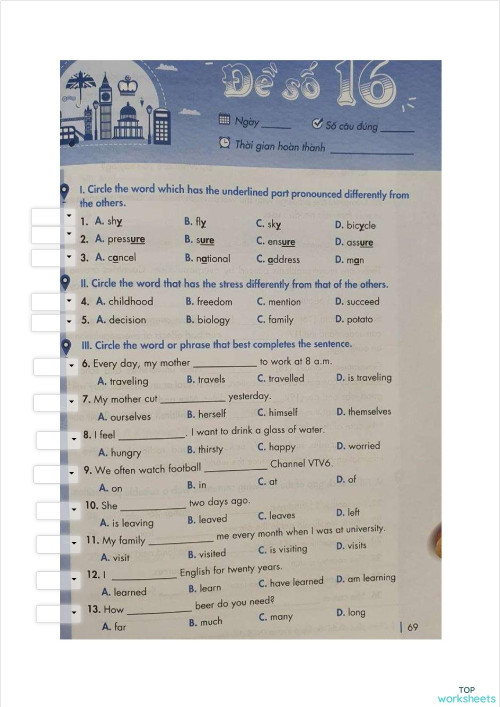 Đề số 16
Ngày ______ Số câu đúng ______
Thời gian hoàn thành ______
I. Circle the word which has the underlined part pronounced differently from
the others.
1. A. shy B. fly C. sky D. bicycle
2. A. pressure B. sure C. ensure D. assure
3. A. cancel B. national C. address D. man
II. Circle the word that has the stress differently from that of the others.
4. A. childhood B. freedom C. mention D. succeed
5. A. decision B. biology C. family D. potato
III. Circle the word or phrase that best completes the sentence.
6. Every day, my mother ______ to work at 8 a.m.
A. traveling B. travels C. travelled D. is traveling
7. My mother cut ______ yesterday.
A. ourselves B. herself C. himself D. themselves
8. I feel ______. I want to drink a glass of water.
A. hungry B. thirsty C. happy D. worried
9. We often watch football ______ Channel VTV6.
A. on B. in C. at D. of
10. She ______ two days ago.
A. is leaving B. leaved C. leaves D. left
11. My family ______ me every month when I was at university.
A. visit B. visited C. is visiting D. visits
12. I ______ English for twenty years.
A. learned B. learn C. have learned D. am learning
13. How ______ beer do you need?
A. far B. much C. many D. long
69
TOP
worksheets